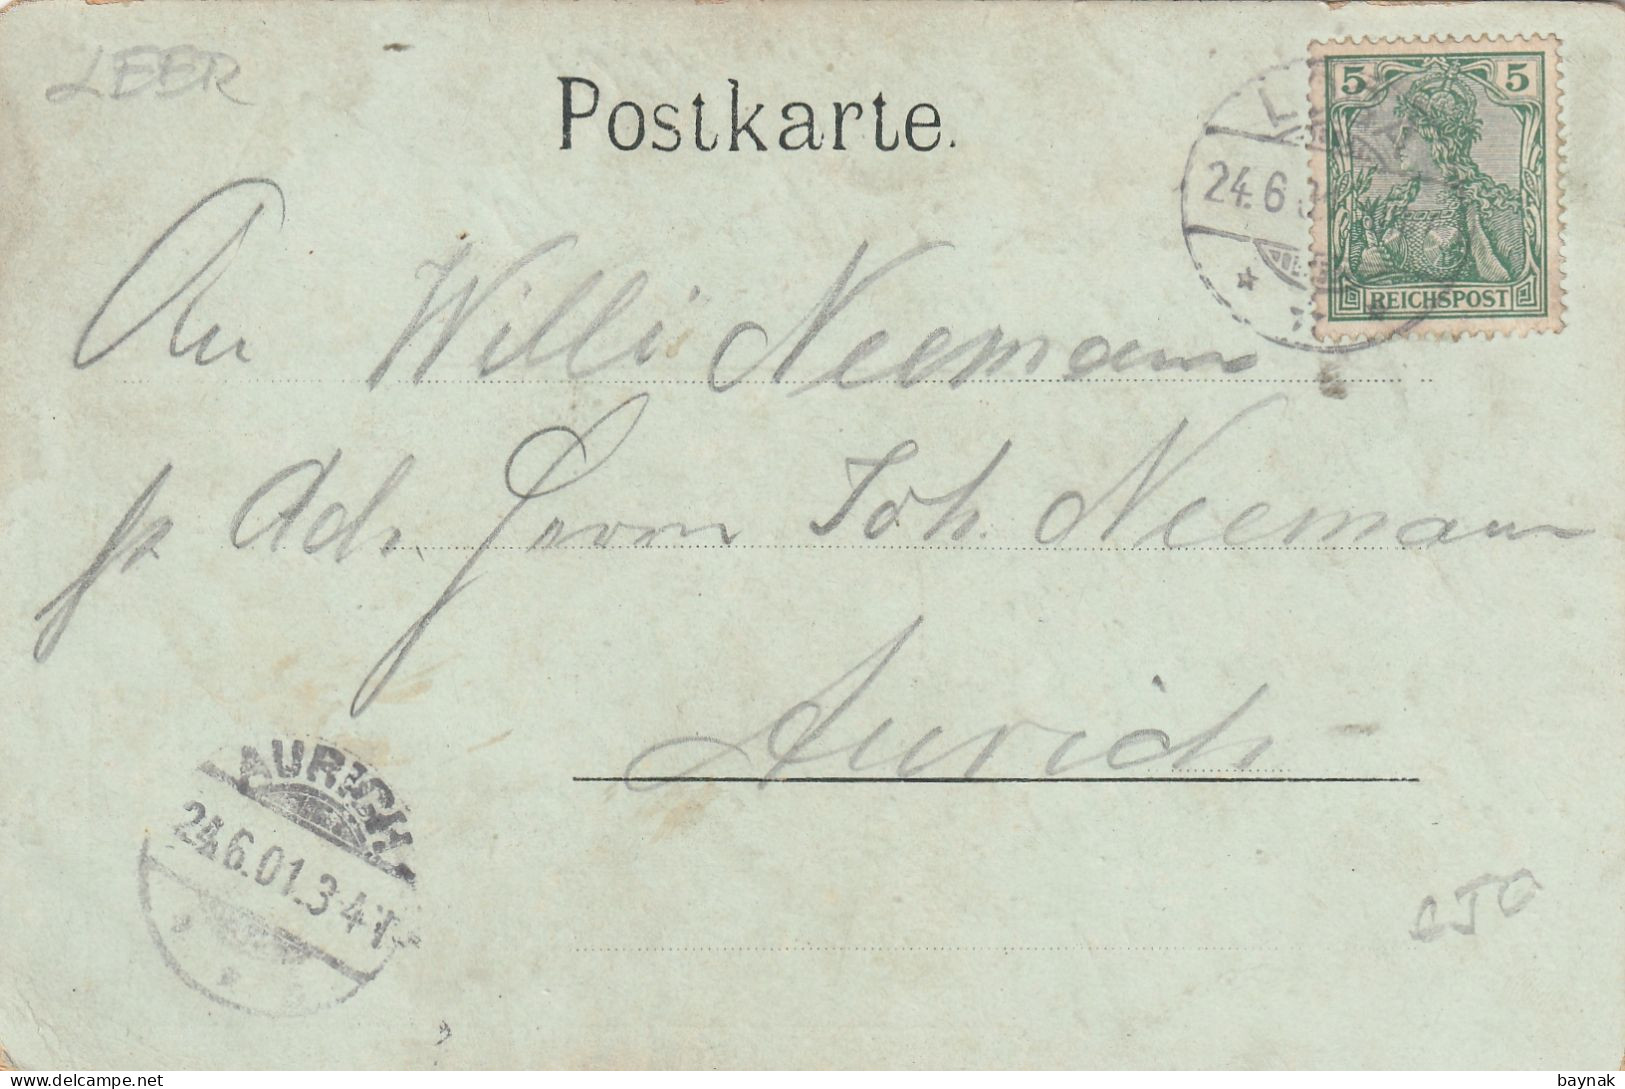 LEER
Postkarte.
5 5
REICHSPOST
24.6
An Willi Neemann
p. Adr. Herrn Joh. Neemann
Aurich
AURICH
24.6.01.3-4N
baynak